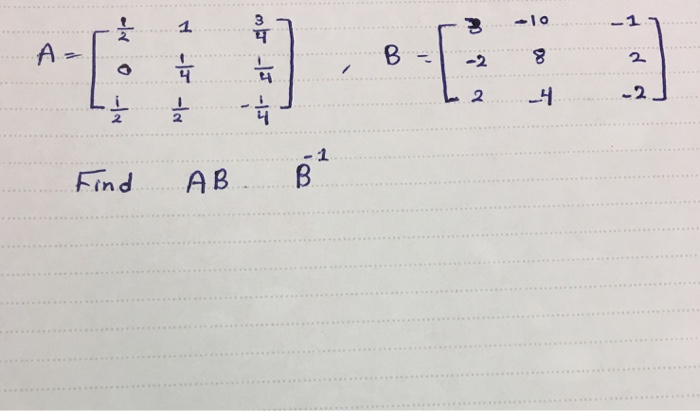 A = [ 1/2 1 3/4 ; 0 1/4 1/4 ; 1/2 1/2 -1/4 ] , B = [ 3 -10 -1 ; -2 8 2 ; 2 -4 -2 ]
Find AB B^-1